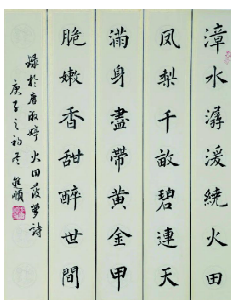 漳水潺湲繞火田
凤梨千畝碧連天
滿身盡帶黃金甲
脆嫩香甜醉世間
錄於唐淑婷火田菠蘿詩
庚子之初冬